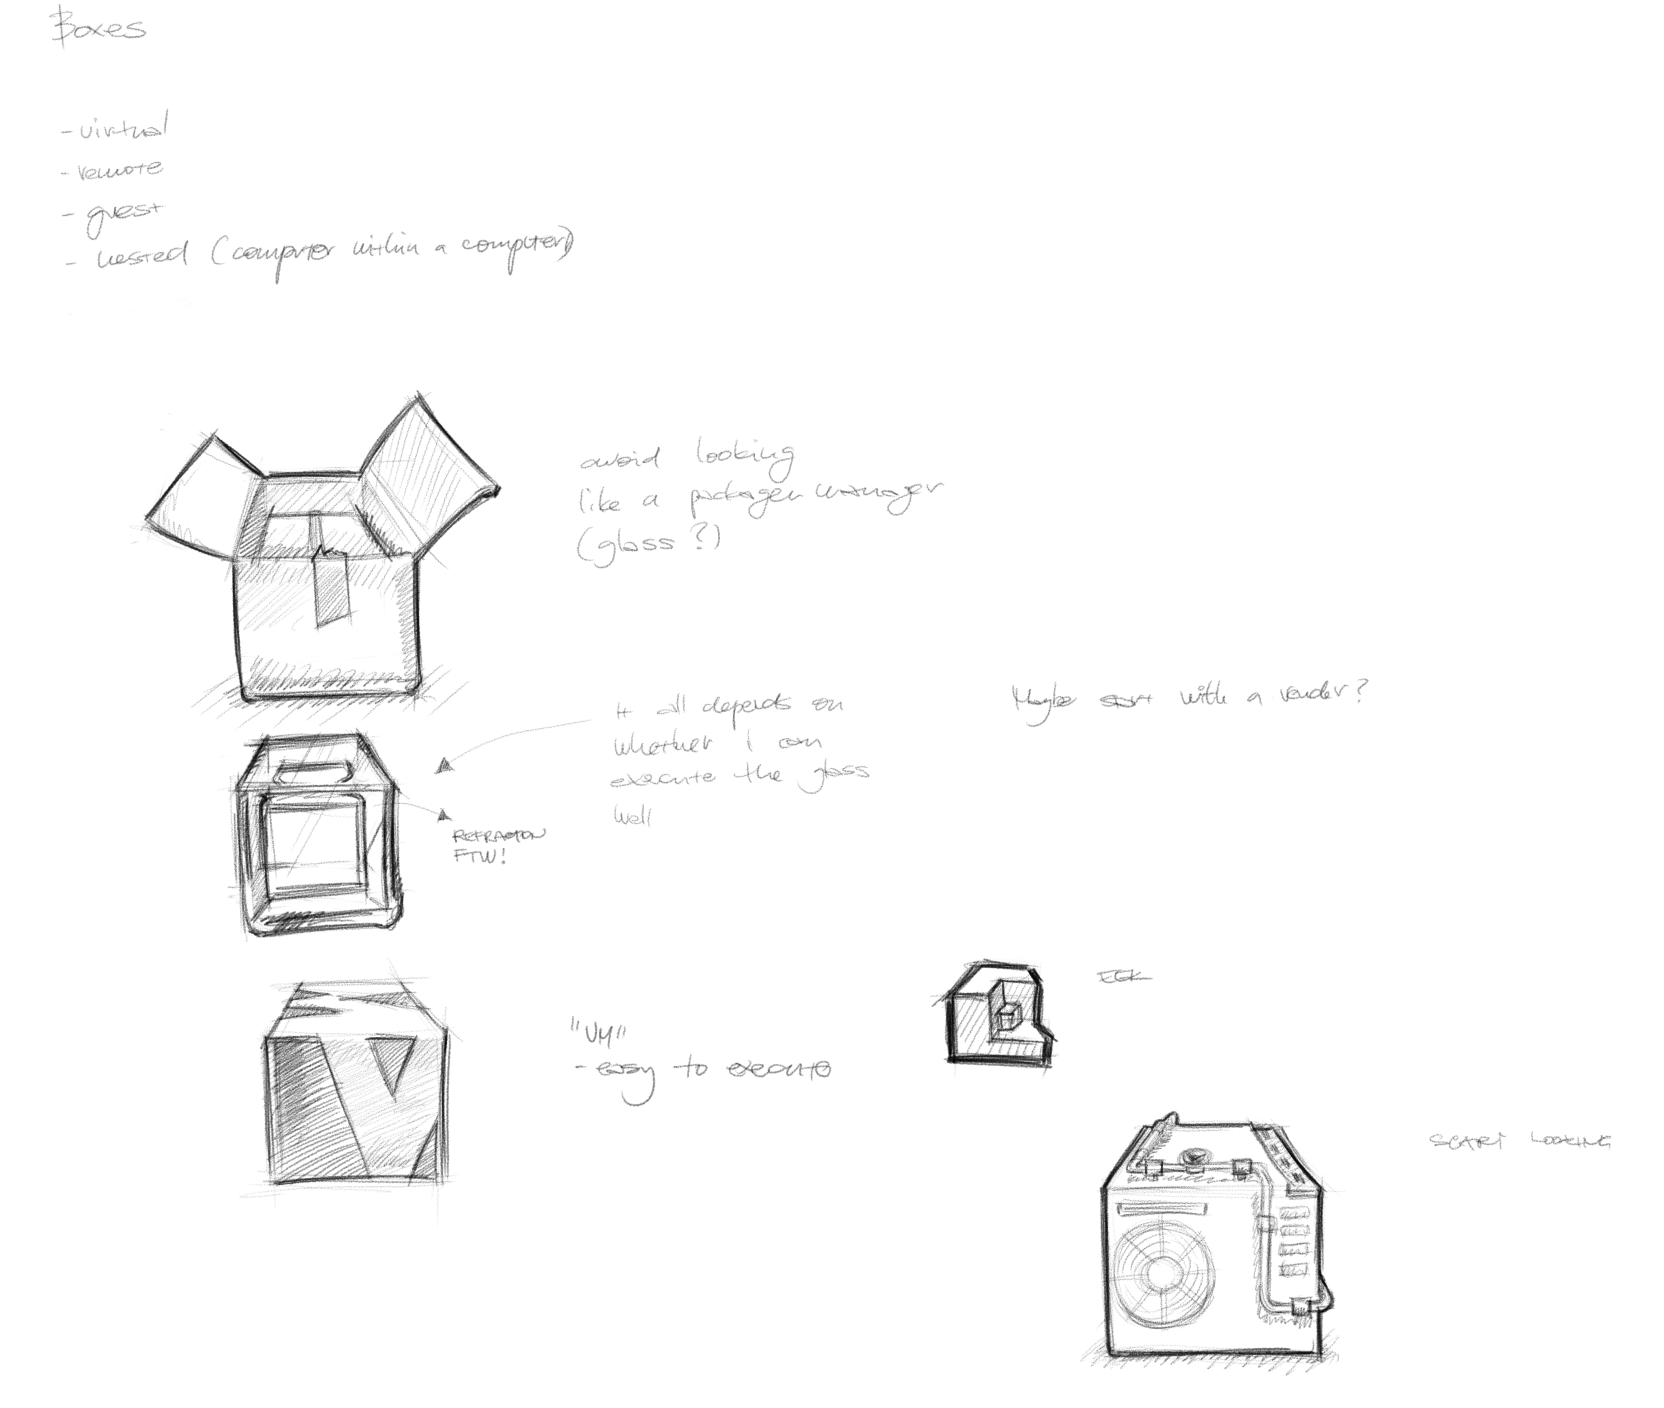 Boxes
- virtual
- remote
- guest
- nested (computer within a computer)
avoid looking
like a package manager
(glass?)
It all depends on
whether I can
execute the glass
well
Maybe start with a render?
REFRACTION
FTW!
"VM"
- easy to execute
EEK
LOOKING